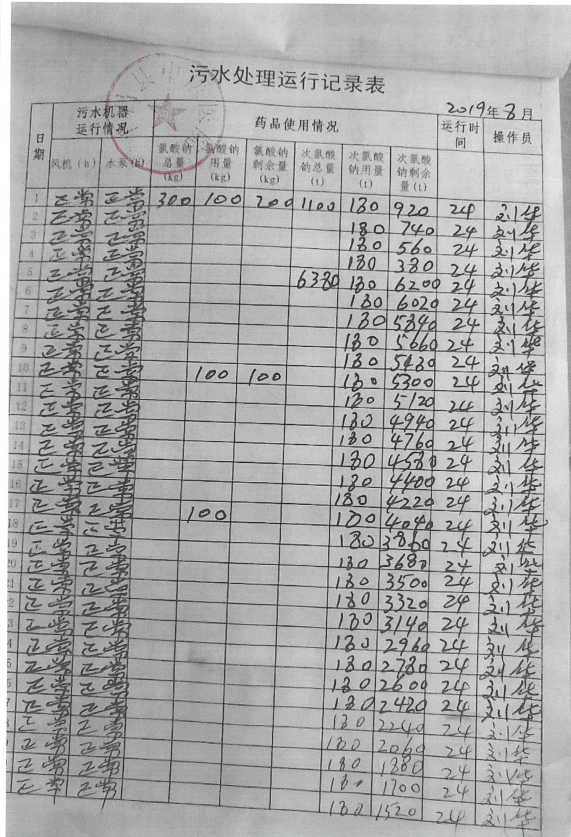 污水处理运行记录表
2019年8月
日期 污水机器运行情况 药品使用情况 运行时间 操作员
风机(h) 水泵(h) 氯酸钠总量(kg) 氯酸钠用量(kg) 氯酸钠剩余量(kg) 次氯酸钠总量(t) 次氯酸钠用量(t) 次氯酸钠剩余量(t)
1 正常 正常 300 100 200 1100 180 920 24 刘华
2 正常 正常 180 740 24 刘华
3 正常 正常 180 560 24 刘华
4 正常 正常 180 380 24 刘华
5 正常 正常 6380 180 6200 24 刘华
6 正常 正常 180 6020 24 刘华
7 正常 正常 180 5840 24 刘华
8 正常 正常 180 5660 24 刘华
9 正常 正常 180 5480 24 刘华
10 正常 正常 100 100 180 5300 24 刘华
11 正常 正常 180 5120 24 刘华
12 正常 正常 180 4940 24 刘华
13 正常 正常 180 4760 24 刘华
14 正常 正常 180 4580 24 刘华
15 正常 正常 180 4400 24 刘华
16 正常 正常 180 4220 24 刘华
17 正常 正常 100 180 4040 24 刘华
18 正常 正常 180 3860 24 刘华
19 正常 正常 180 3680 24 刘华
正常 正常 180 3500 24 刘华
正常 正常 180 3320 24 刘华
正常 正常 180 3140 24 刘华
正常 正常 180 2960 24 刘华
正常 正常 180 2780 24 刘华
正常 正常 180 2600 24 刘华
正常 正常 180 2420 24 刘华
正常 正常 180 2240 24 刘华
正常 正常 180 2060 24 刘华
正常 正常 180 1880 24 刘华
正常 正常 180 1700 24 刘华
正常 正常 180 1520 24 刘华